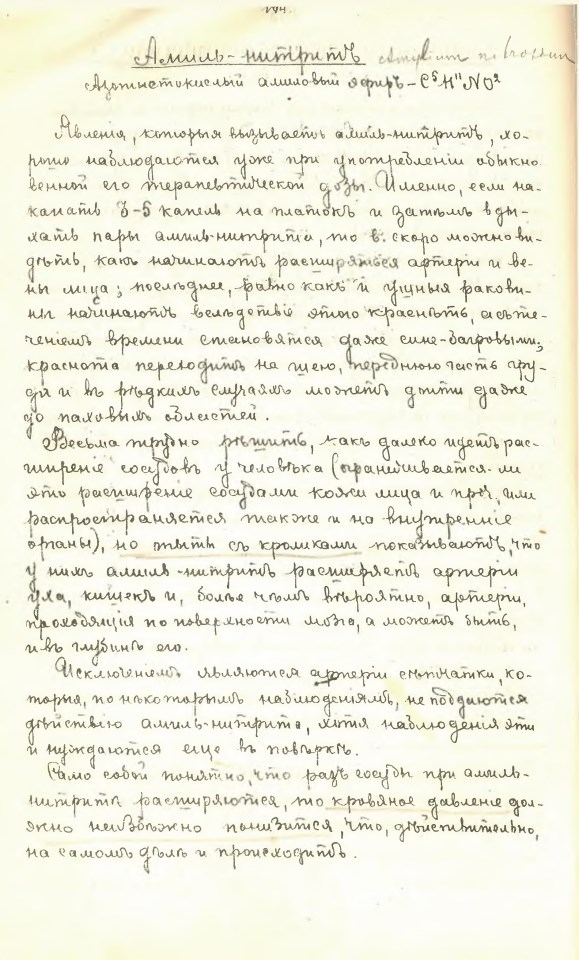 Амиль-нитритъ
Азотистокислый амиловый эфиръ – C⁵H¹¹NO²
Явленія, которыя вызываетъ амиль-нитритъ, хо-
рошо наблюдаются уже при употребленіи обыкно
венной его терапевтической дозы. Именно, если на-
капать 3-5 капель на платокъ и затѣмъ вды-
хать пары амиль-нитрита, то в. скоро можно ви-
дѣть, какъ начинаютъ расширяться артеріи и ве-
ны лица; послѣднее, равно какъ и ушныя ракови-
ны начинаютъ вслѣдствіе этого краснѣть, а съ те-
ченіемъ времени становятся даже сине-багровыми;
краснота переходитъ на шею, переднюю часть гру-
ди и въ рѣдкихъ случаяхъ можетъ дойти даже
до паховыхъ областей.
Весьма трудно рѣшить, какъ далеко идетъ рас-
ширеніе сосудовъ у человѣка (ограничивается-ли
это расширеніе сосудами кожи лица и проч, или
распространяется также и на внутренніе
органы), но опыты съ кроликами показываютъ, что
у нихъ амиль-нитритъ расширяетъ артеріи
уха, кишекъ и, болѣе чѣмъ вѣроятно, артеріи,
проходящія по поверхности мозга, а можетъ быть,
и въ глубинѣ его.
Исключеніемъ являются артеріи сѣтчатки, ко-
торыя, по нѣкоторымъ наблюденіямъ, не поддаются
дѣйствію амиль-нитрита, хотя наблюденія эти
и нуждаются еще въ повѣркѣ.
Само собой понятно, что разъ сосуды при амиль-
нитритѣ расширяются, то кровяное давленіе дол-
жно неизбѣжно понизится, что, дѣйствительно,
на самомъ дѣлѣ и происходитъ.